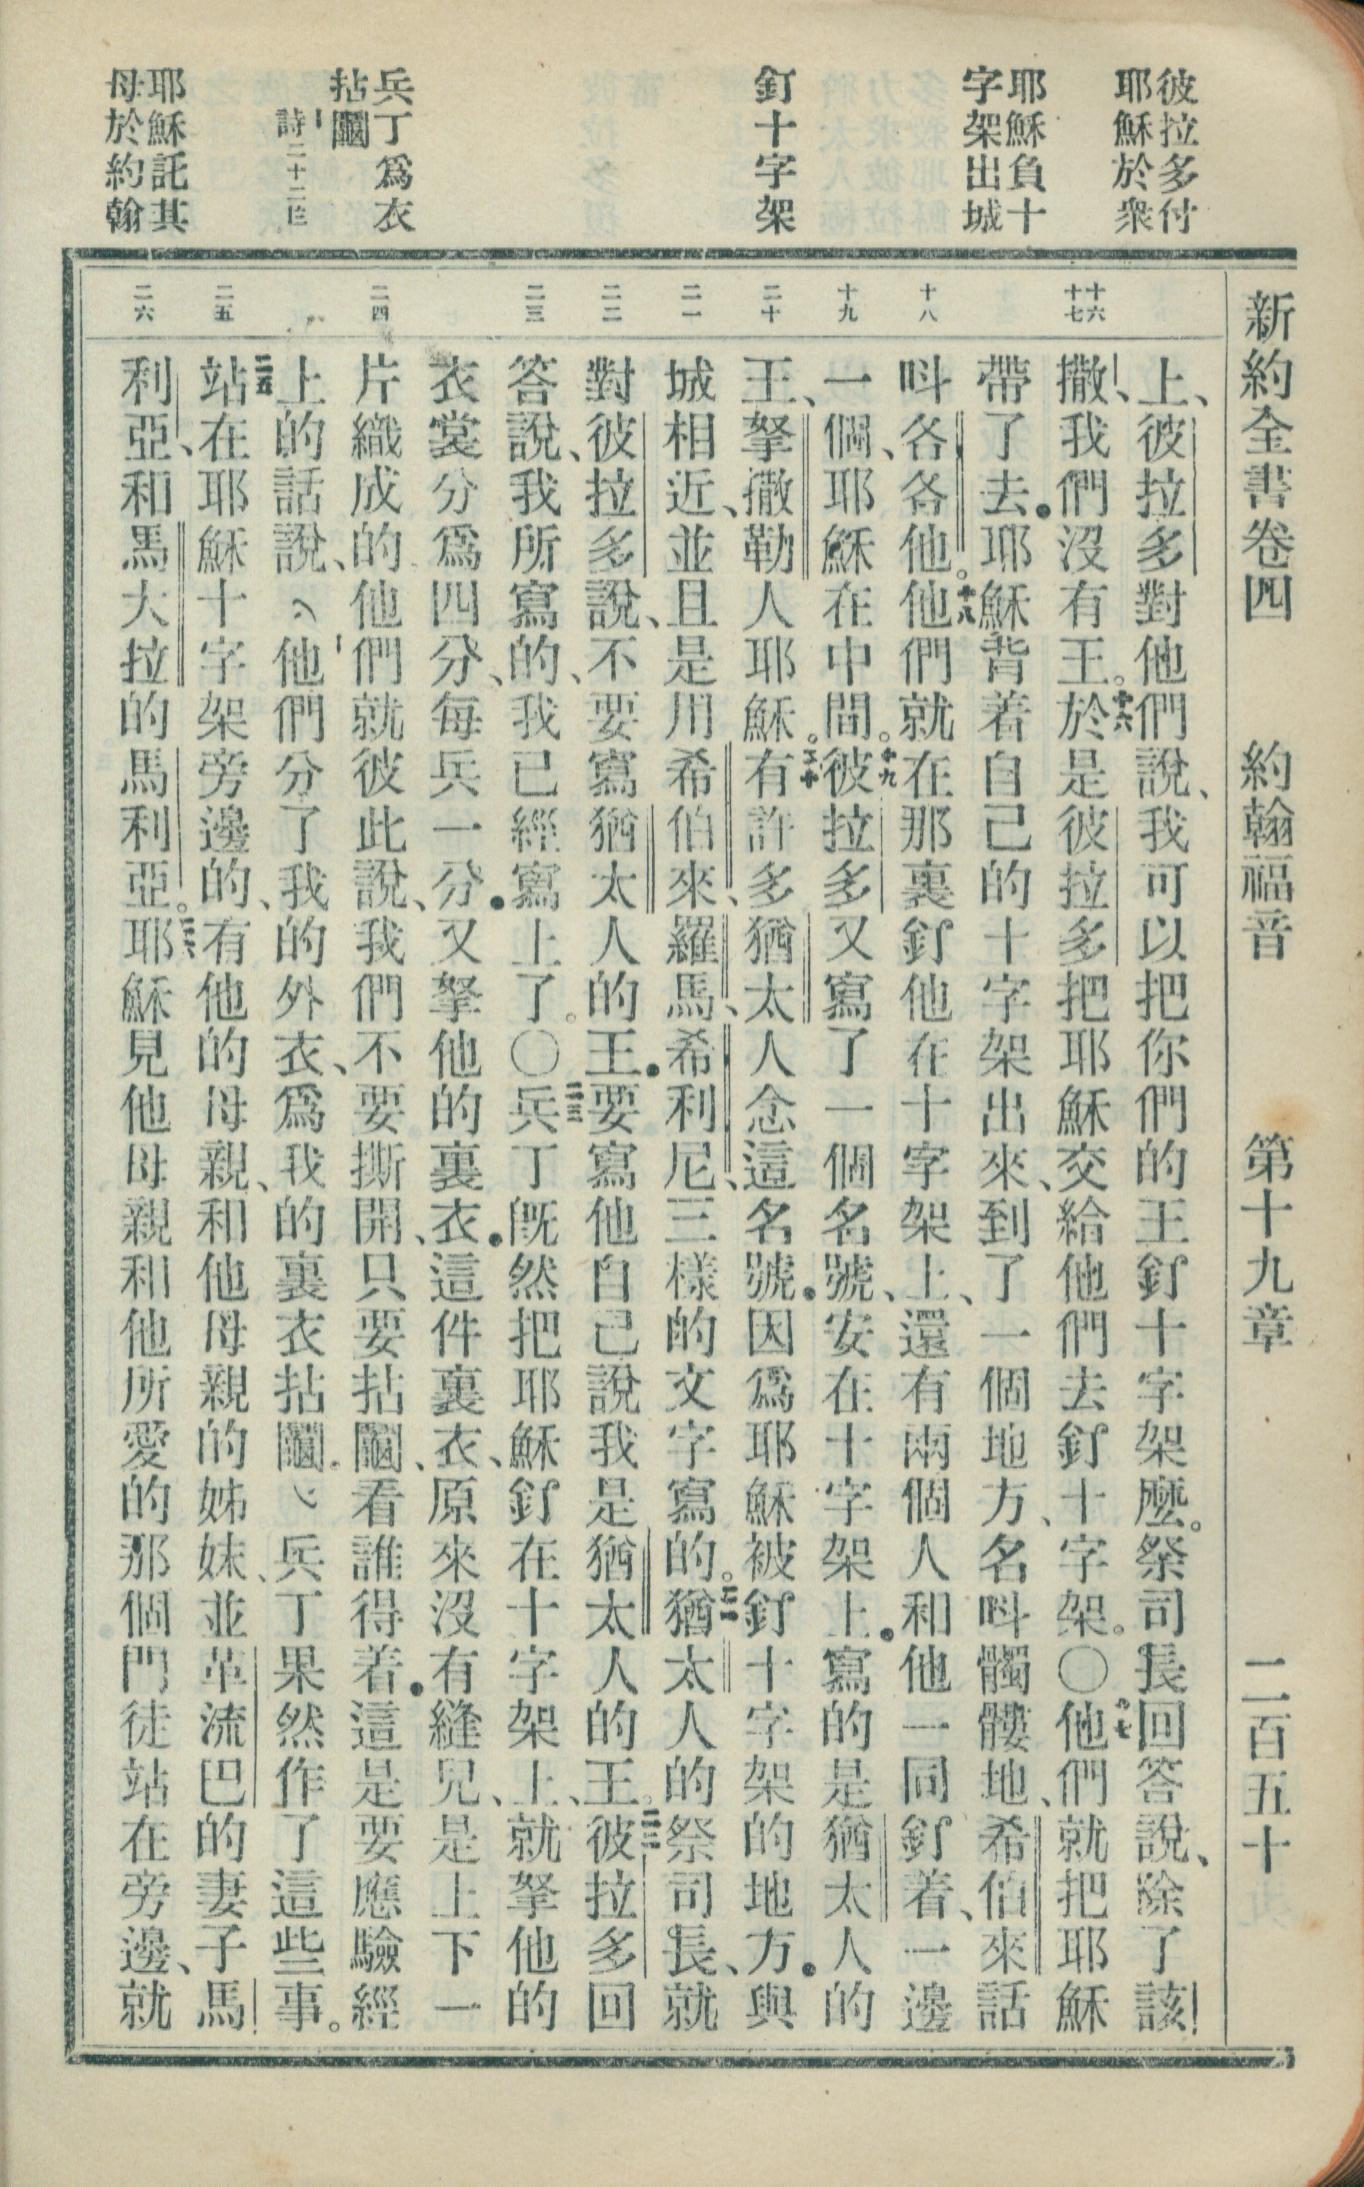 新約全書卷四　約翰福音　第十九章　二百五十
彼拉多付
耶穌於衆
耶穌負十
字架出城
釘十字架
兵丁爲衣
拈鬮
詩二十二
耶穌託其
母於約翰
十六
十七
十八
十九
二十
二一
二二
二三
二四
二五
二六
上、彼拉多對他們說、我可以把你們的王釘十字架麼。祭司長回答說、除了該
撒、我們沒有王。十六於是彼拉多把耶穌交給他們去釘十字架。〇十七他們就把耶穌
帶了去．耶穌背着自己的十字架出來、到了一個地方、名呌髑髏地、希伯來話
呌各各他。十八他們就在那裏釘他在十字架上、還有兩個人和他一同釘着、一邊
一個、耶穌在中間。十九彼拉多又寫了一個名號、安在十字架上．寫的是猶太人的
王、拏撒勒人耶穌。二十有許多猶太人念這名號．因爲耶穌被釘十字架的地方．與
城相近、並且是用希伯來、羅馬、希利尼、三樣的文字寫的。二一猶太人的祭司長、就
對彼拉多說、不要寫猶太人的王．要寫他自己說我是猶太人的王。二二彼拉多回
答說、我所寫的、我已經寫上了。〇二三兵丁旣然把耶穌釘在十字架上、就拏他的
衣裳分爲四分、每兵一分．又拏他的裏衣．這件裏衣、原來沒有縫兒、是上下一
片織成的他們就彼此說、我們不要撕開、只要拈鬮、看誰得着．這是要應驗經
上的話說、他們分了我的外衣、爲我的裏衣拈鬮．兵丁果然作了這些事。
二五站在耶穌十字架旁邊的、有他的母親、和他母親的姊妹、並革流巴的妻子馬
利亞、和馬大拉的馬利亞。二六耶穌見他母親和他所愛的那個門徒站在旁邊、就